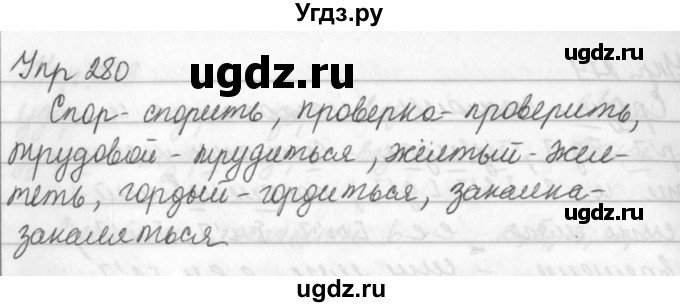 Угдз.ру
Упр 280
угдз.ру
Спор - спорить, проверка - проверить,
трудовой - трудиться, жёлтый - жел-
теть, гордый - гордиться, закалка -
закаляться
угдз.ру